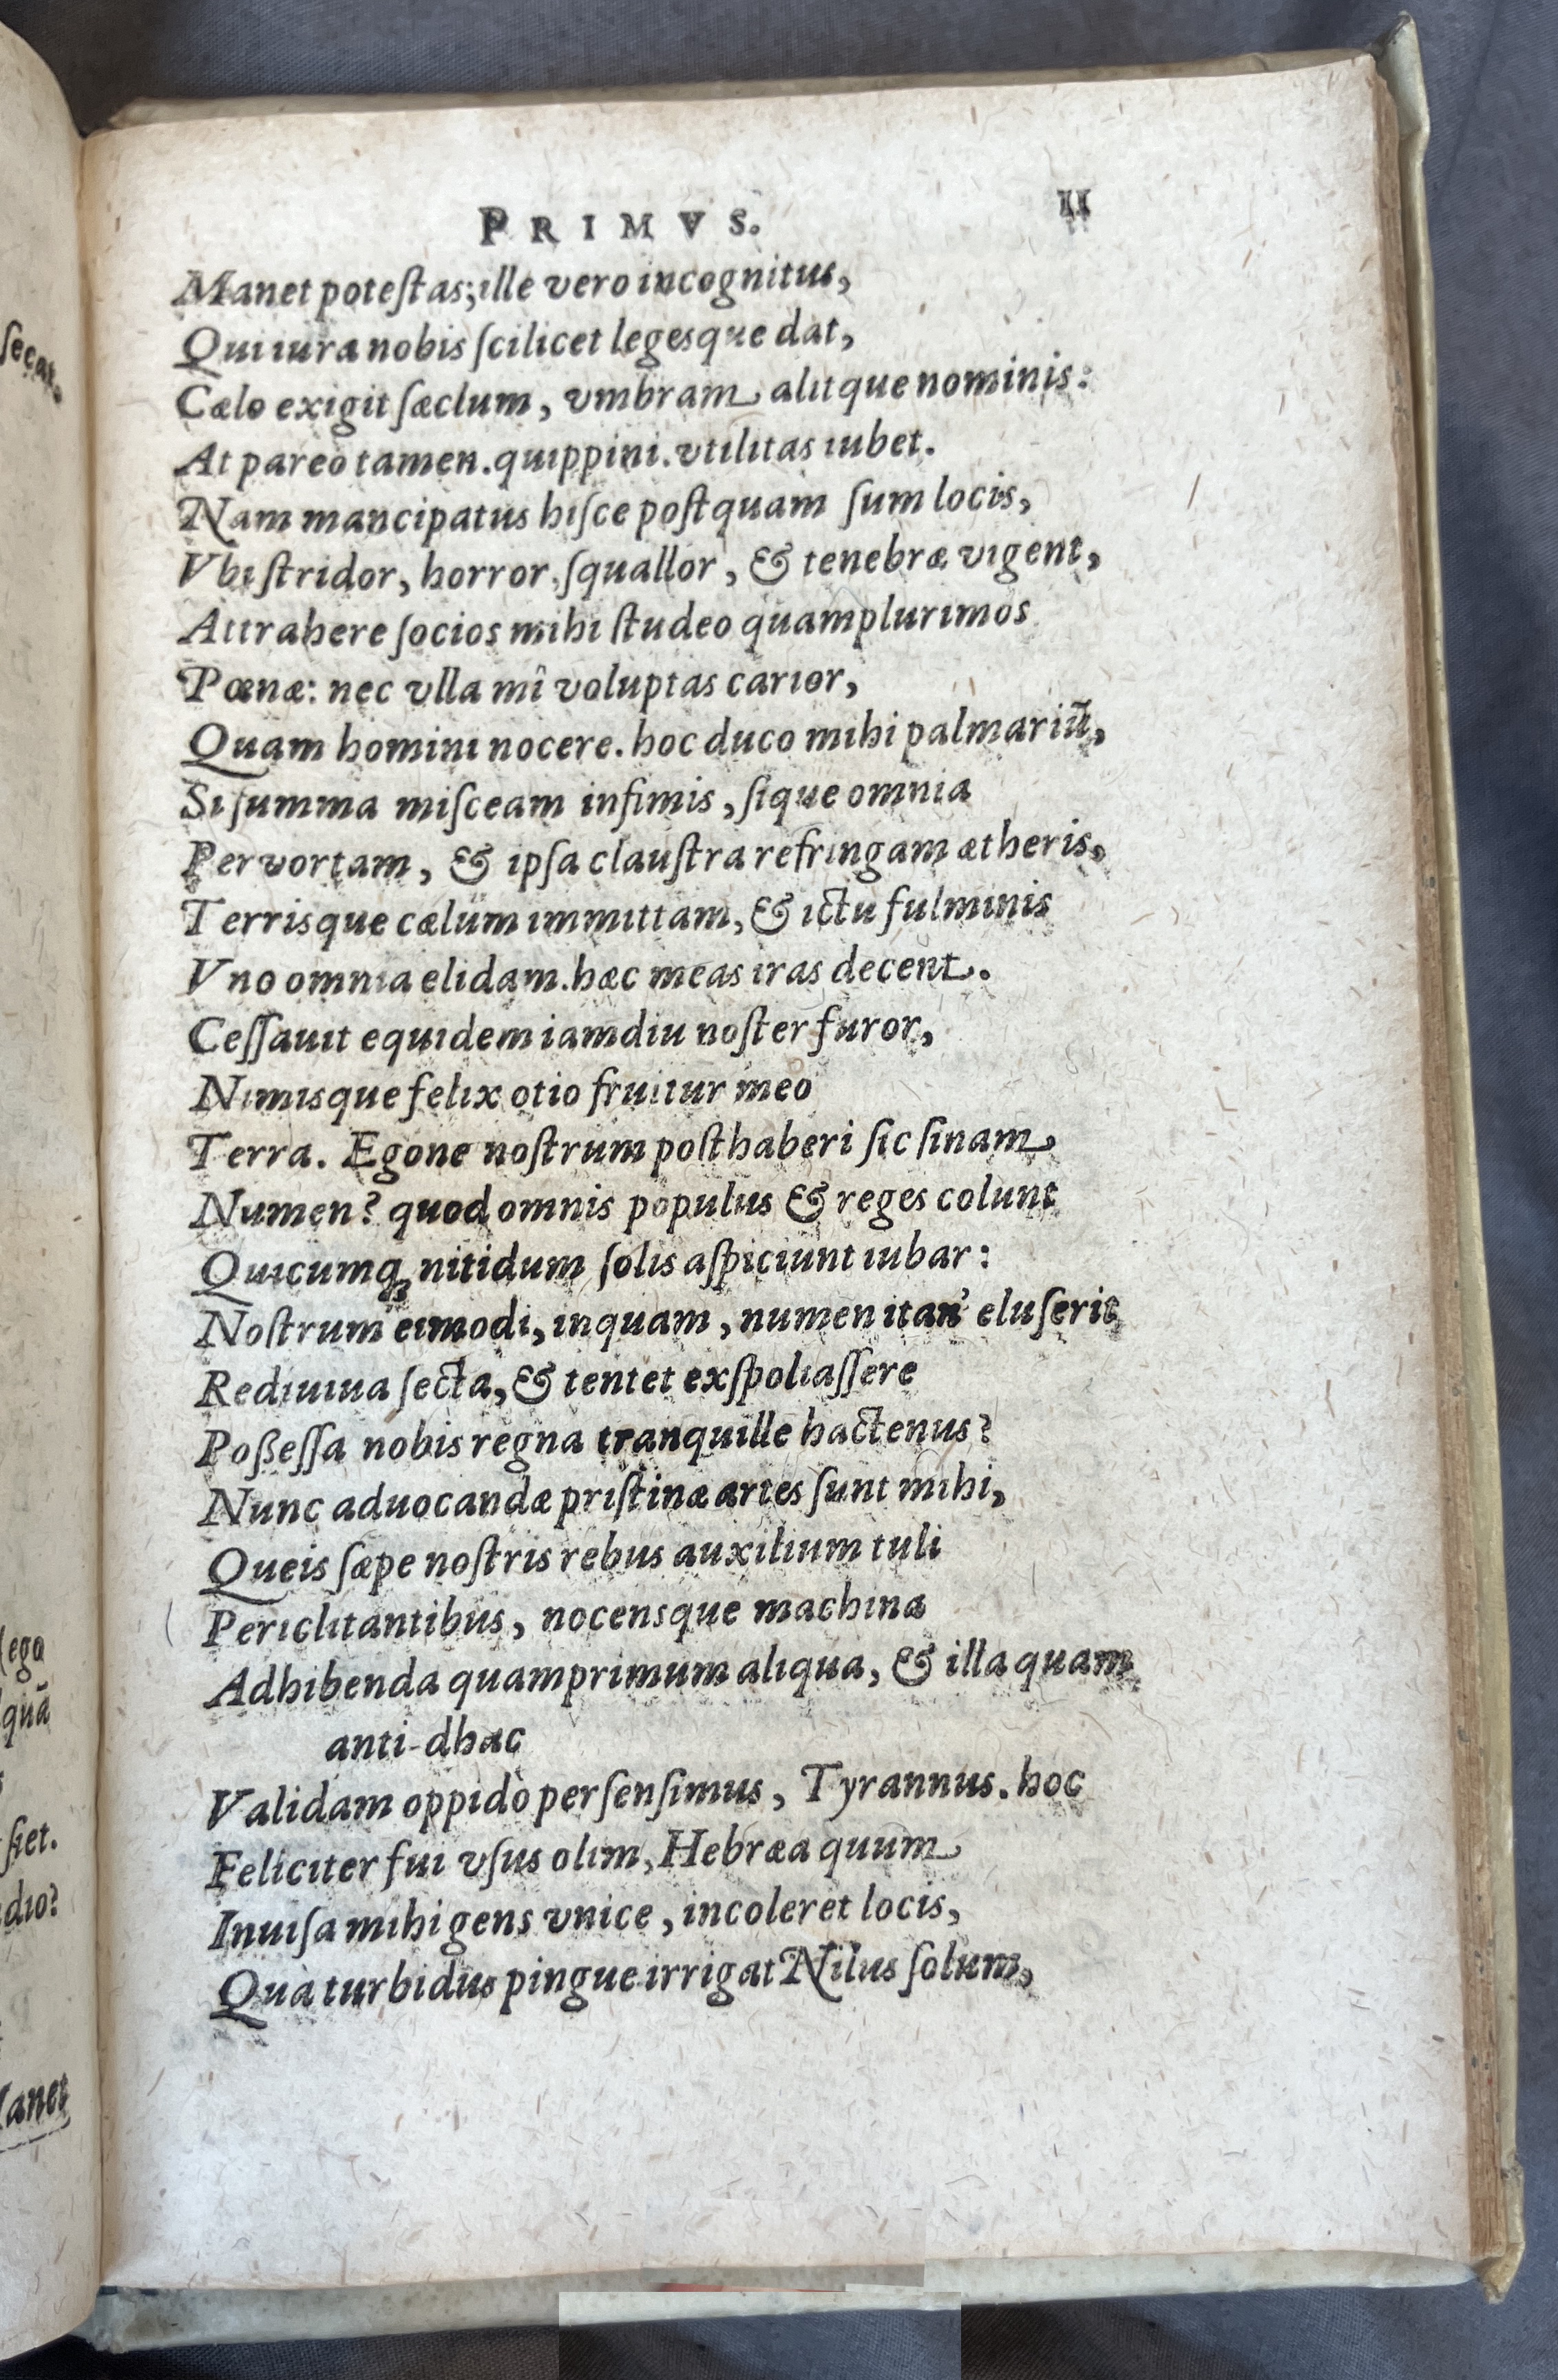 PRIMVS. II
Manet poteſtas; ille vero incognitus,
Qui iura nobis ſcilicet legesque dat,
Cælo exigit ſæclum, vmbram alitque nominis:
At pareo tamen. quippini. vtilitas iubet.
Nam mancipatus hiſce poſtquam ſum locis,
Vbi ſtridor, horror, ſquallor, & tenebræ vigent,
Attrahere ſocios mihi ſtudeo quamplurimos
Pœnæ: nec vlla mî voluptas carior,
Quam homini nocere. hoc duco mihi palmariũ,
Si ſumma miſceam infimis, ſique omnia
Pervortam, & ipſa clauſtra refringam ætheris,
Terrisque cælum immittam, & ictu fulminis
Vno omnia elidam. hæc meas iras decent.
Ceſſauit equidem iamdiu noſter furor,
Nimisque felix otio fruitur meo
Terra. Egone noſtrum poſthaberi ſic ſinam
Numen? quod omnis populus & reges colunt
Quicumq; nitidum ſolis aſpiciunt iubar:
Noſtrum eimodi, inquam, numen itan' eluſerit
Rediuiua ſecta, & tentet exſpoliaſſere
Poßeſſa nobis regna tranquille hactenus?
Nunc aduocandæ priſtinæ artes ſunt mihi,
Queis ſæpe noſtris rebus auxilium tuli
Periclitantibus, nocensque machina
Adhibenda quamprimum aliqua, & illa quam
anti-dhac
Validam oppidò perſenſimus, Tyrannus. hoc
Feliciter fui vſus olim, Hebræa quum
Inuiſa mihi gens vnice, incoleret locis,
Quà turbidus pingue irrigat Nilus ſolum,
ſecat.
ego
quã
ſiet.
dio?
Manet